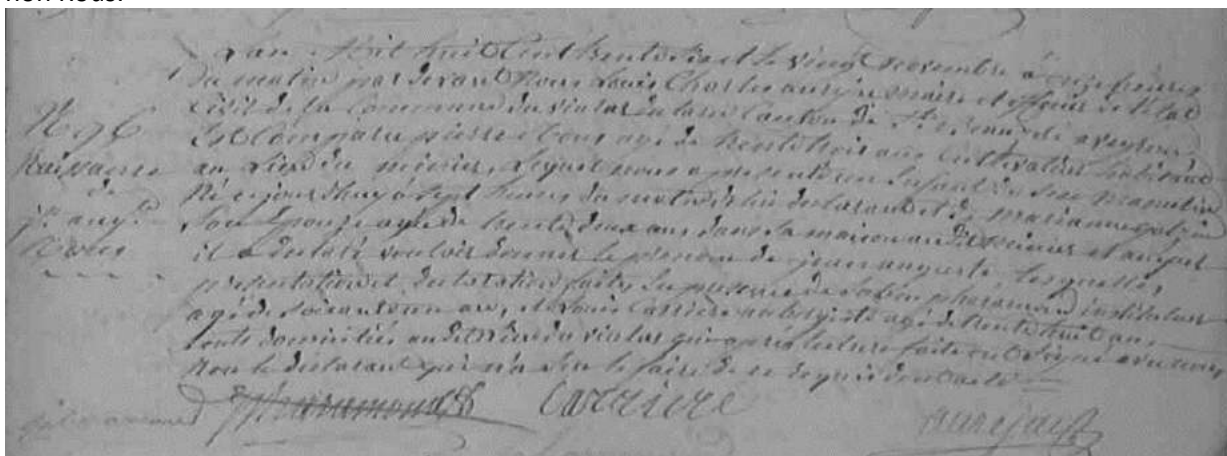 non nous.
L'an Mil huit Cent trente sept le vingt novembre à onze heures
du matin par devant Nous Louis Charles maire et officier de l'état
Civil de la Commune du viala du tarn Canton de St aveyron
Est Comparu pierre agé de trente trois ans Cultivateur habitant
au Lieu du Lequel nous a présenté un Enfant du Sexe masculin
Né aujourd'huy à sept heures du matin de lui déclarant et de marianne
Son Epouze agée de trente deux ans dans sa maison audit et auquel
il a déclaré vouloir donner le prénom de jean auguste, lesquelles
présentation et déclaration faites En présence de instituteur
agé de soixante un ans, et Louis Carriere aubergiste agé de trente huit ans
touts domiciliés audit Lieu du vialas qui après lecture faite ont signé avec nous,
Non le déclarant qui n'a Seu le faire de ce requis
N 96
Naissance
de
jn augte
Carriere